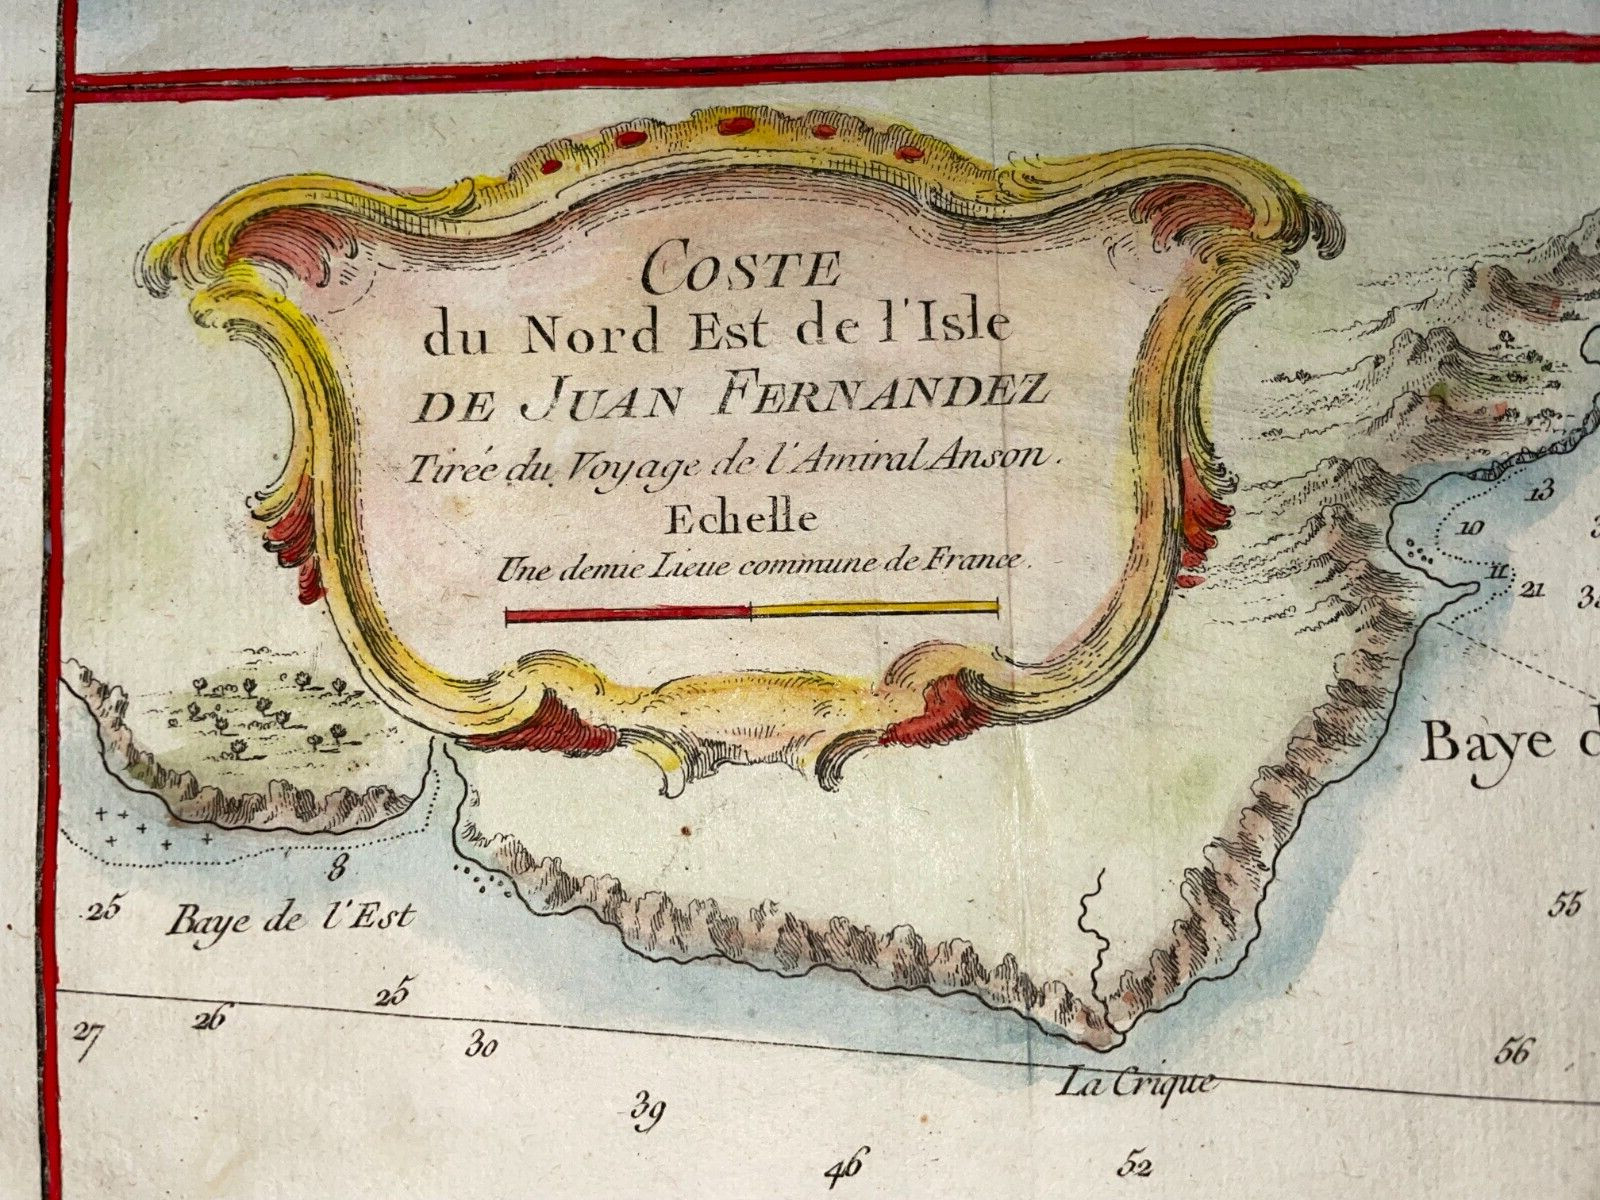 COSTE
du Nord Est de l'Isle
DE JUAN FERNANDEZ
Tirée du Voyage de l'Amiral Anson.
Echelle
Une demie Lieue commune de France.
13
10
11
21
Baye d
8
25
Baye de l'Est
55
25
27
26
30
56
La Crique
39
46
52